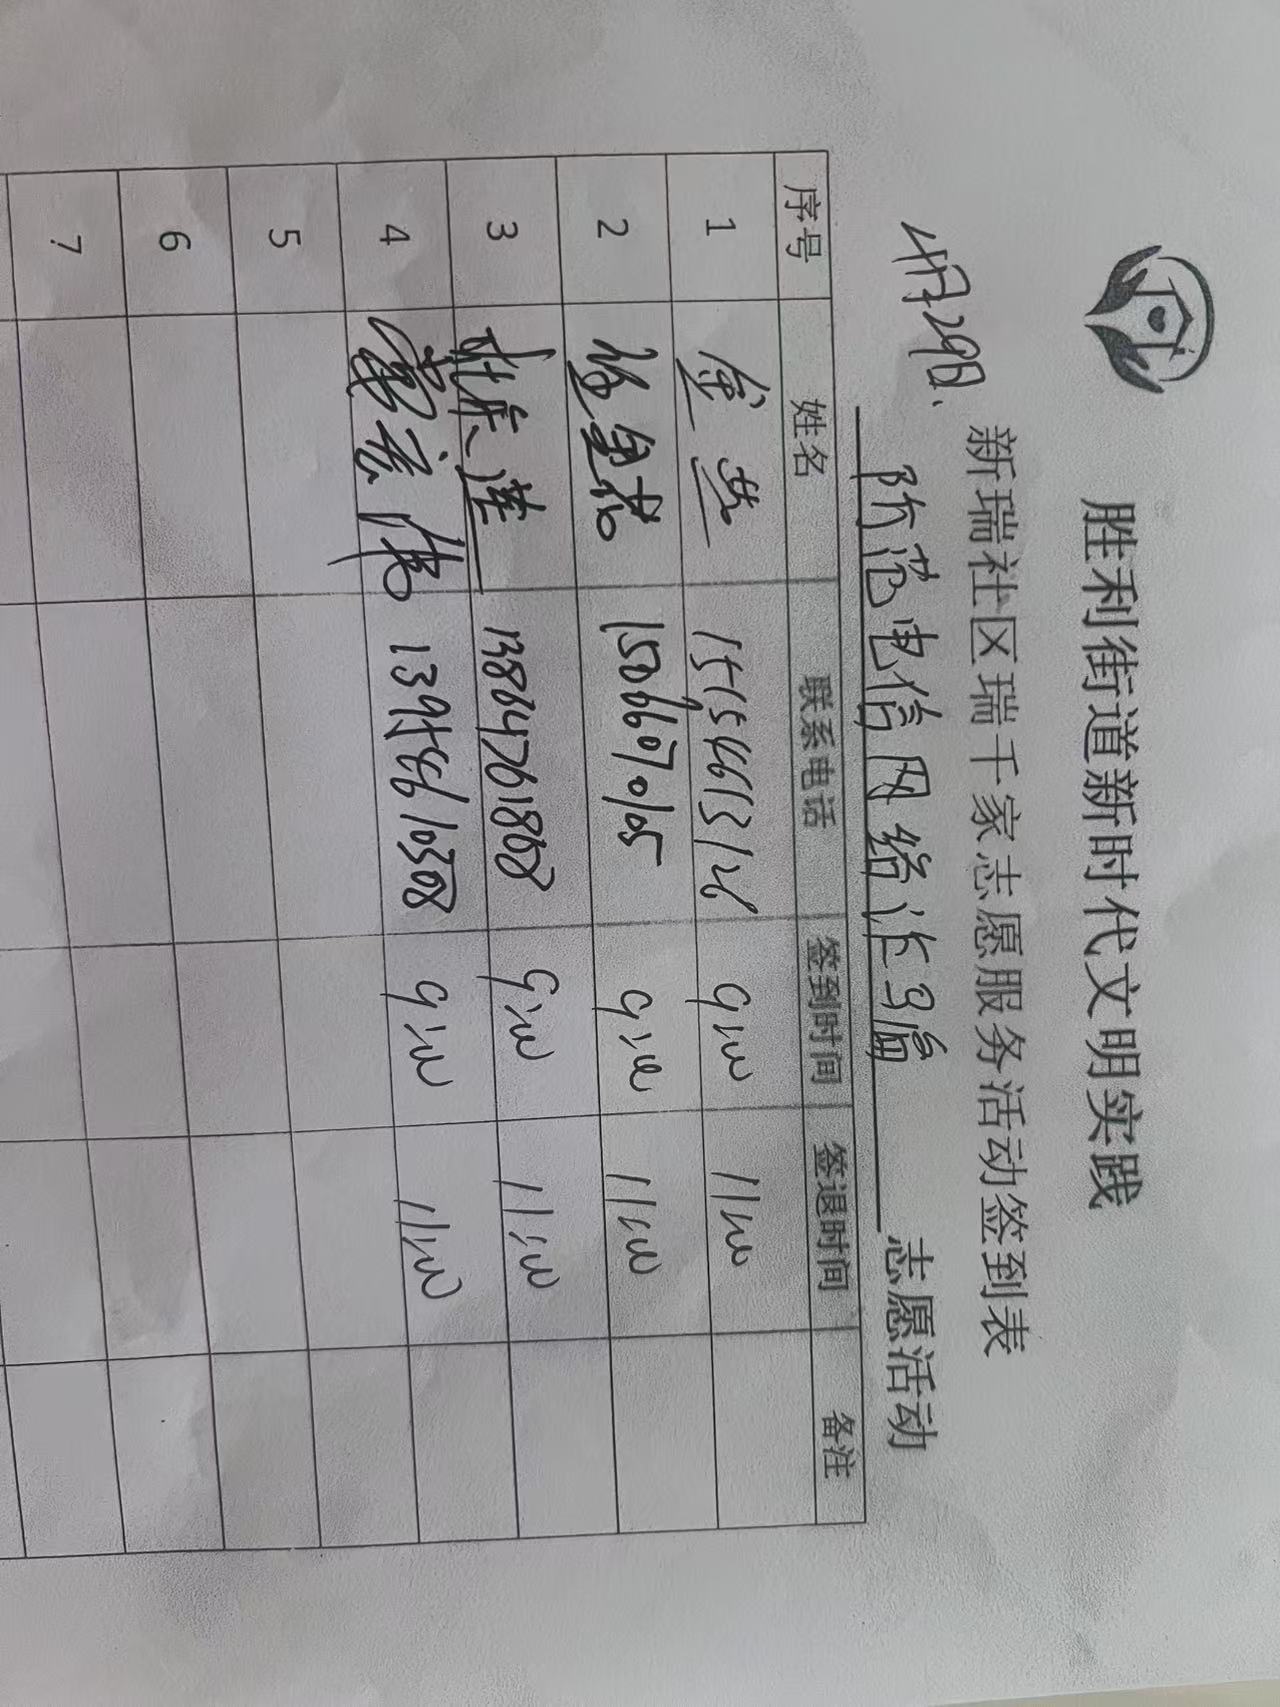 胜利街道新时代文明实践
新瑞社区瑞千家志愿服务活动签到表
4月29日、防范电信网络诈骗志愿活动
序号 姓名 联系电话 签到时间 签退时间 备注
1 金燕 15154613126 9:00 11:00
2 15066070105 9:00 11:00
3 13864761868 9:00 11:00
4 13954610508 9:00 11:00
5
6
7